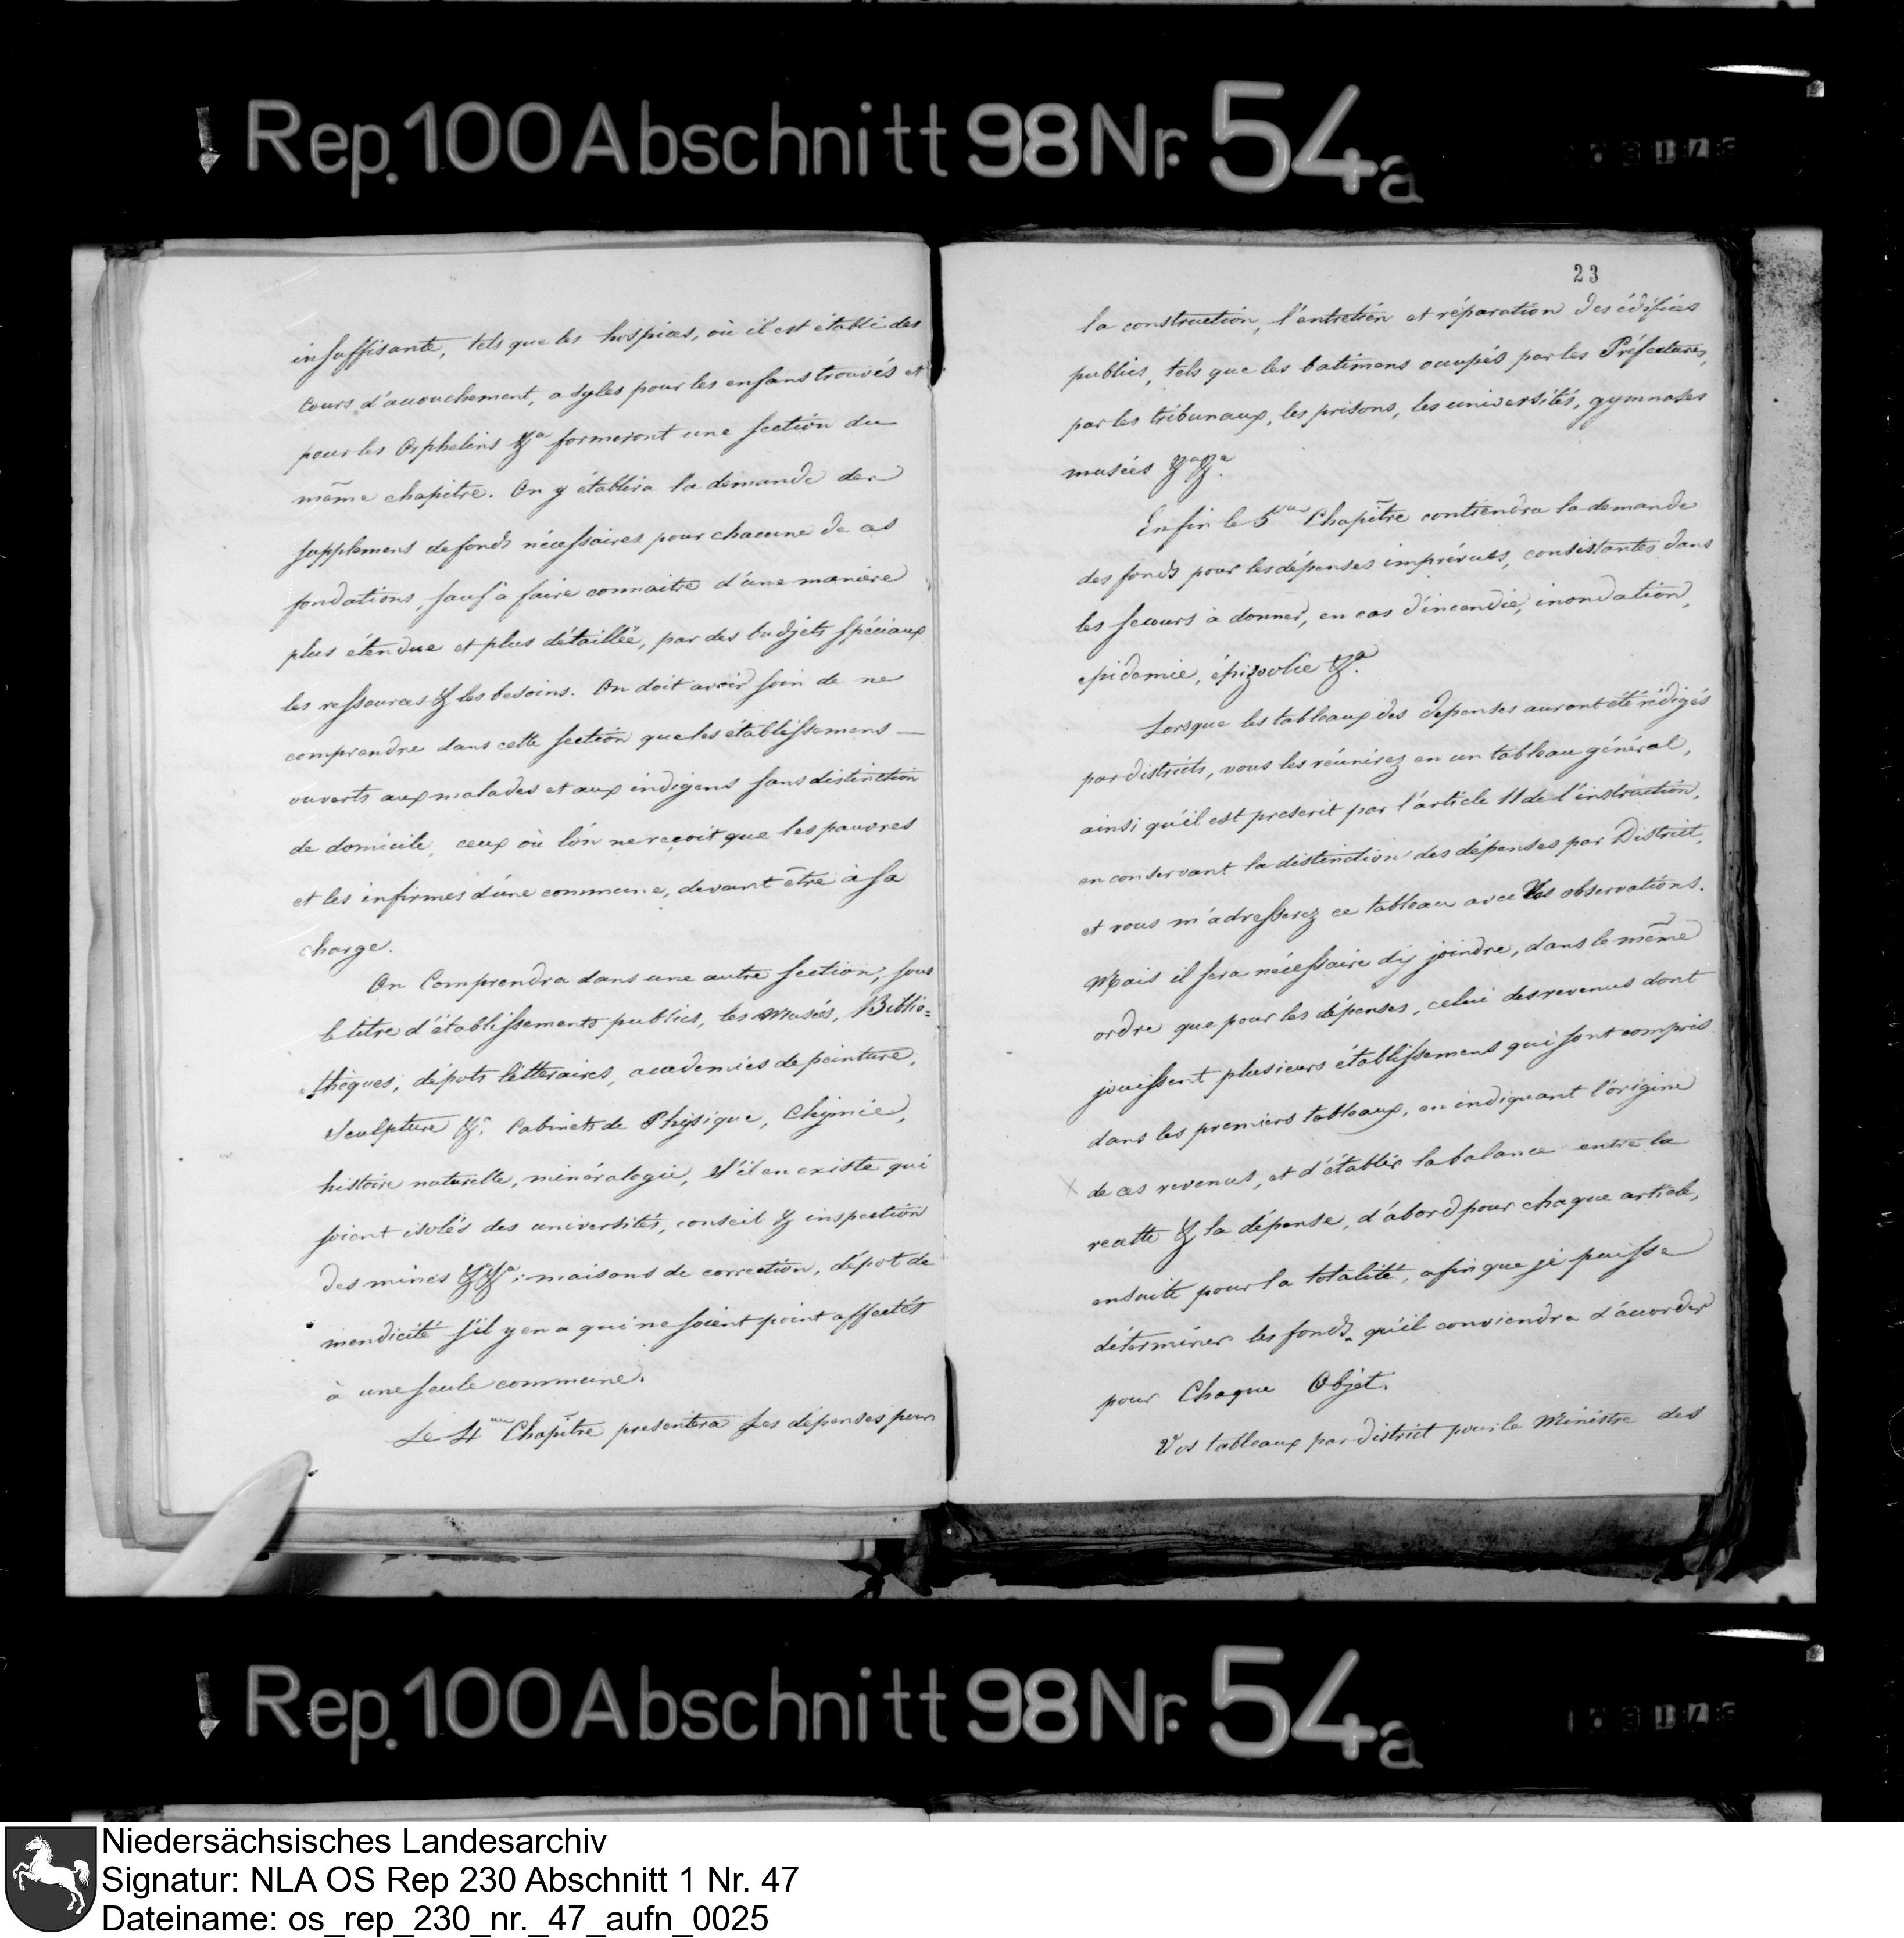 Rep. 100 Abschnitt 98 Nr. 54a
insuffisante, tels que les hospices, où il est établi des
Cours d'accouchement, asyles pour les enfans trouvés et
pour les Orphelins &a formeront une section du
même chapitre. On y établira la demande des
supplemens de fonds nécessaires pour chacune de ces
fondations, sauf à faire connaitre d'une manière
plus étendue et plus détaillée, par des budjets spéciaux
les ressources & les besoins. On doit avoir soin de ne
comprendre dans cette section que les établissemens
ouverts aux malades et aux indigens sans distinction
de domicile, ceux où l'on ne reçoit que les pauvres
et les infirmes d'une commune, devant être à sa
charge.
On Comprendra dans une autre section, sous
le titre d'établissements publics, les Musées, Biblio=
thèques, dépots litteraires, academies de peinture,
Sculpture &a. Cabinets de Physique, Chymie,
histoire naturelle, minéralogie, s'il en existe qui
soient isolés des universités, conseil & inspection
des mines &&a; maisons de correction, dépot de
mendicité s'il y en a qui ne soient point affectés
à une seule commune.
Le 4me Chapître presentera les dépenses pour
23
la construction, l'entretien et réparation des édifices
publics, tels que les batimens occupés par les Préfectures,
par les tribunaux, les prisons, les universités, gymnases
musées &a &a.
Enfin le 5me Chapître contiendra la demande
des fonds pour les dépenses imprévues, consistantes dans
les secours à donner, en cas d'incendie, inondation,
epidemie, épizootie &a.
Lorsque les tableaux des depenses auront été rédigés
par districts, vous les réunirez en un tableau général,
ainsi qu'il est prescrit par l'article 11 de l'instruction,
en conservant la distinction des dépenses par District,
et vous m'adresserez ce tableau avec Vos observations.
Mais il sera nécessaire d'y joindre, dans le même
ordre que pour les dépenses, celui des revenus dont
jouissent plusieurs établissemens qui sont compris
dans les premiers tableaux, en indiquant l'origine
de ces revenus, et d'établir la balance entre la
recette & la dépense, d'abord pour chaque article,
ensuite pour la totalité, afin que je puisse
déterminer les fonds qu'il conviendra d'accorder
pour Chaque Objet.
Vos tableaux par district pour le Ministre des
Rep. 100 Abschnitt 98 Nr. 54a
Niedersächsisches Landesarchiv
Signatur: NLA OS Rep 230 Abschnitt 1 Nr. 47
Dateiname: os_rep_230_nr._47_aufn_0025